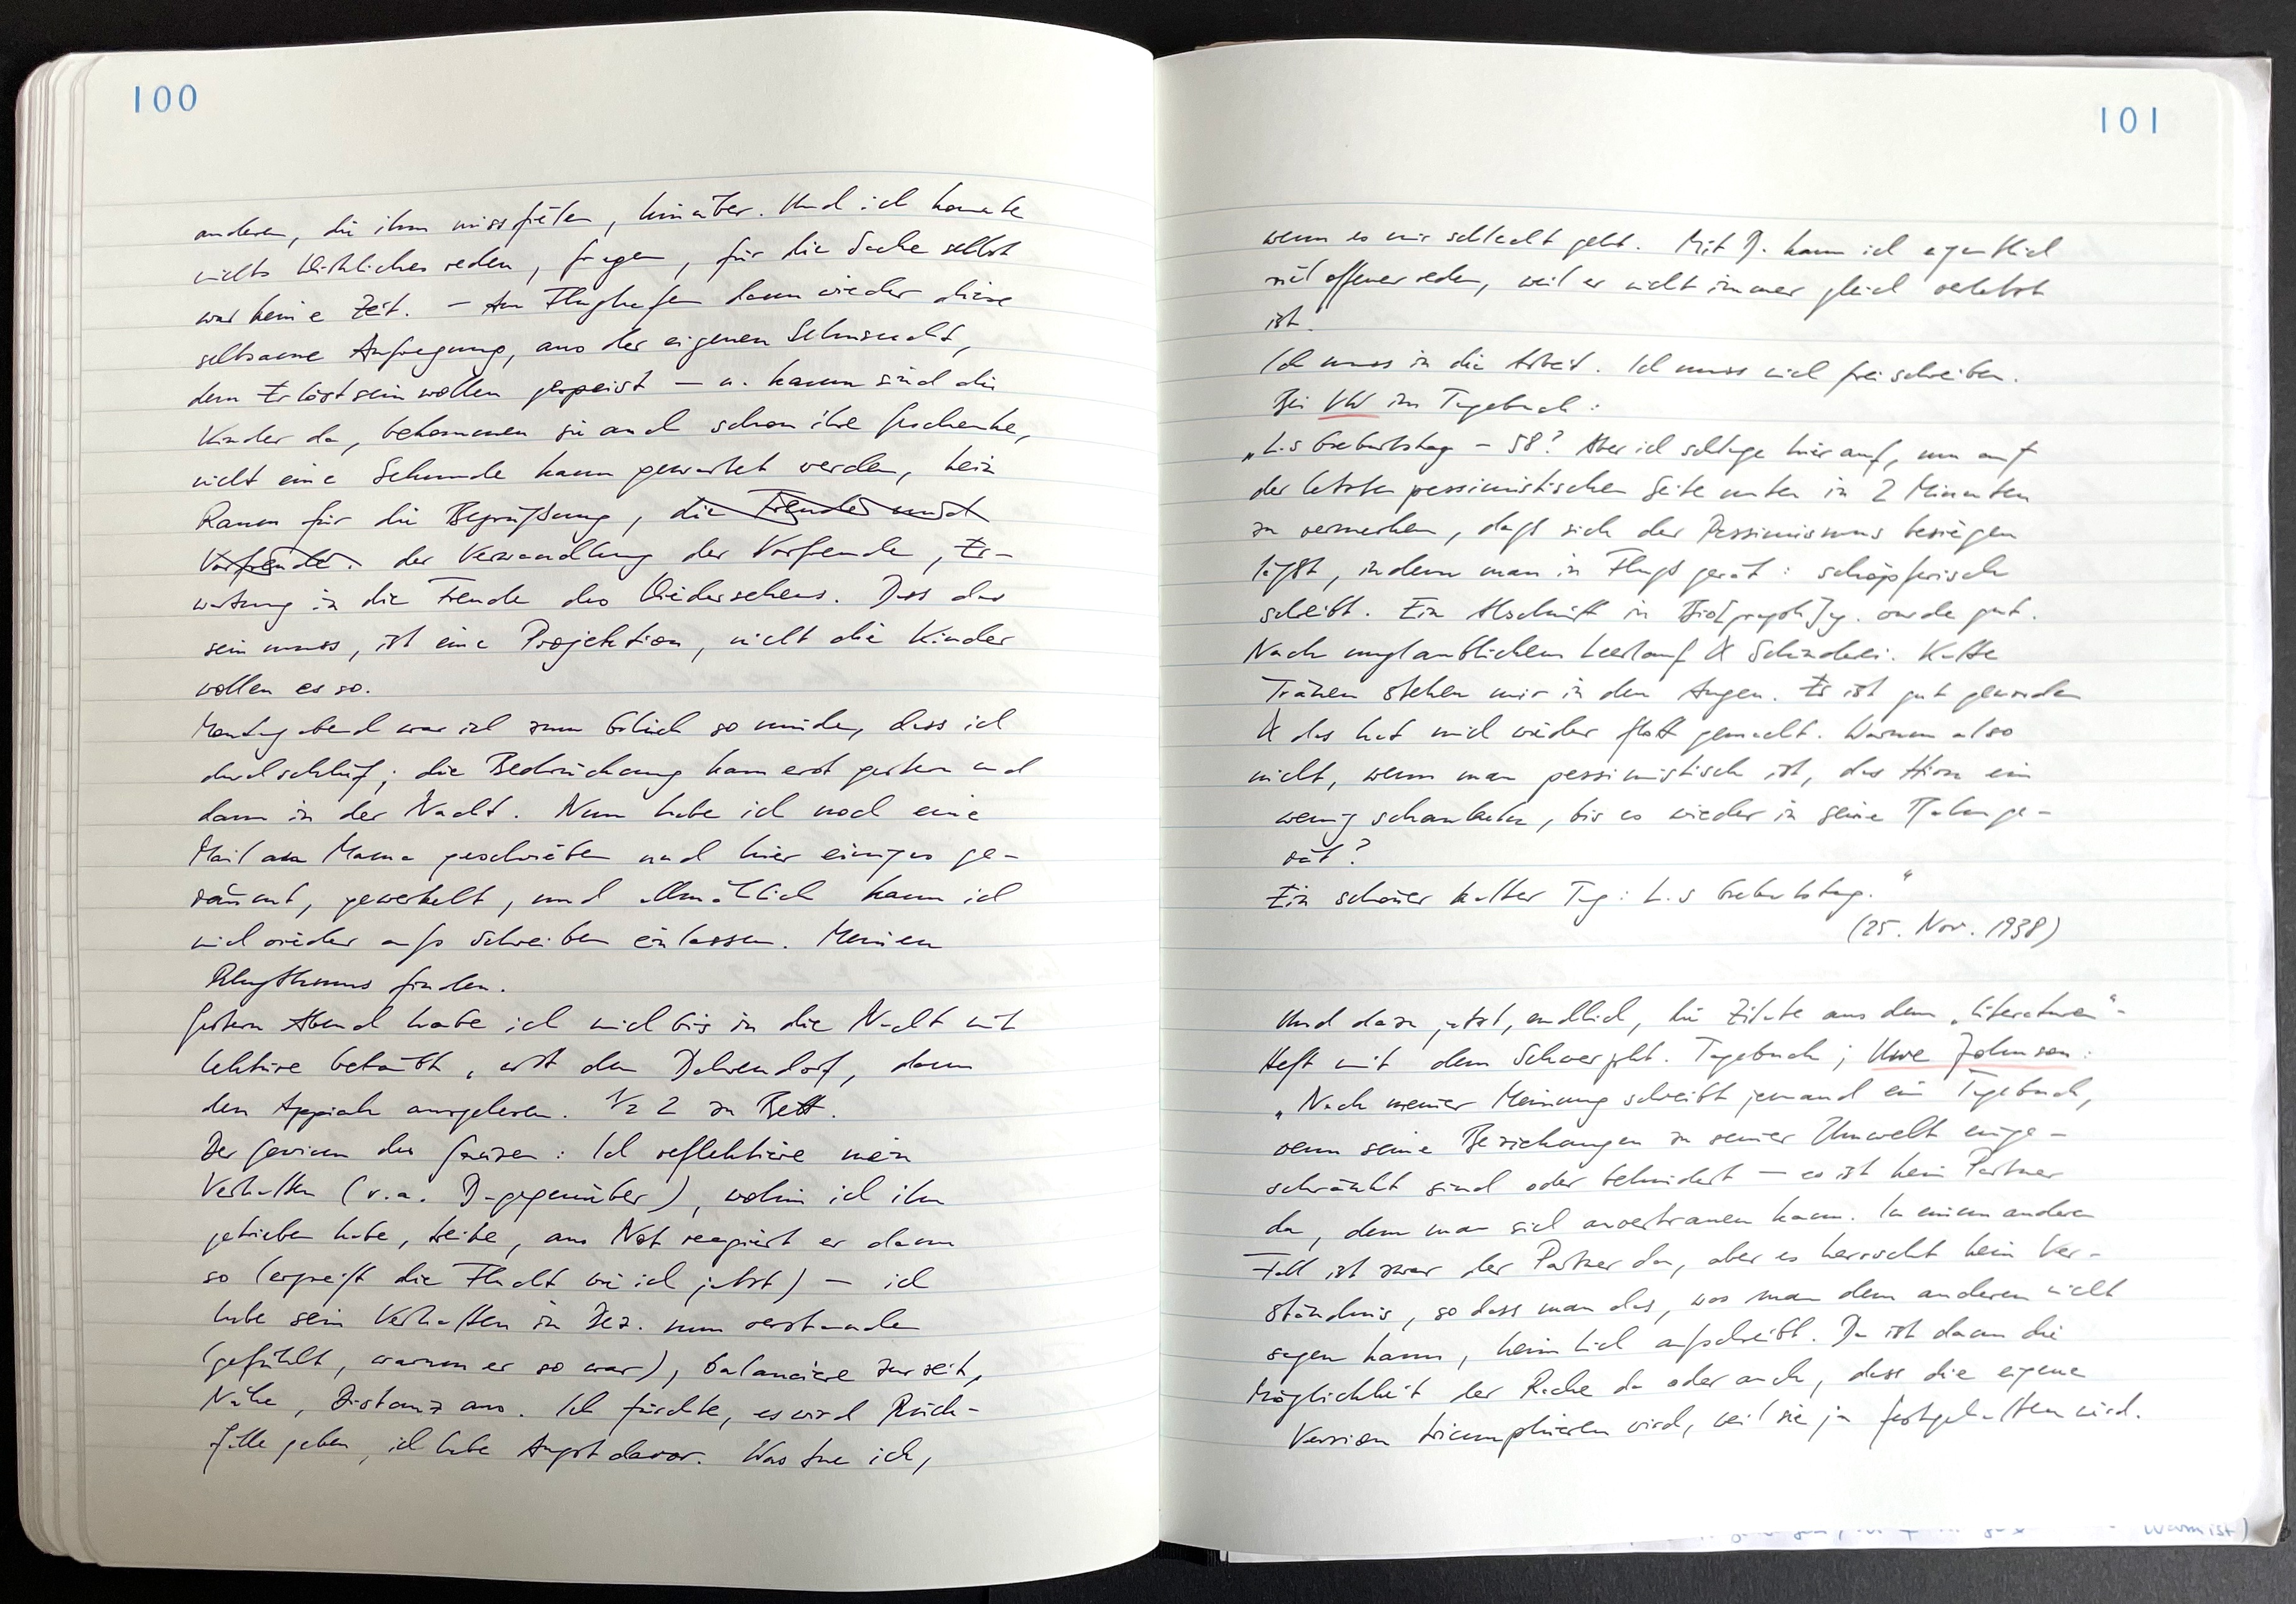 100
anderen, die ihm missfielen, hinüber. Und ich konnte
nichts Wirkliches reden, fragen, für die Sache selbst
war keine Zeit. – Am Flughafen dann wieder diese
seltsame Aufregung, aus der eigenen Sehnsucht,
dem Erlöstseinwollen gespeist – u. kaum sind die
Kinder da, bekommen sie auch schon ihre Geschenke,
nicht eine Sekunde kann gewartet werden, kein
Raum für die Begrüßung, die Freude und
Vorfreude. der Verwandlung der Vorfreude, Er-
wartung in die Freude des Wiedersehens. Dass das
sein muss, ist eine Projektion, nicht die Kinder
wollen es so.
Montagabend war ich zum Glück so müde, dass ich
durchschlief; die Bedrückung kam erst gestern und
dann in der Nacht. Nun habe ich noch eine
Mail an Mama geschrieben und hier einiges ge-
räumt, gewerkelt, und allmählich kann ich
mich wieder aufs Schreiben einlassen. Meinen
Rhythmus finden.
Gestern Abend habe ich mich bis in die Nacht mit
Lektüre betäubt, erst den Dahrendorf, dann
den Appiah ausgelesen. ½ 2 zu Bett.
Der Gewinn des Ganzen: Ich reflektiere mein
Verhalten (v.a. D-gegenüber), wohin ich ihn
getrieben habe, treibe, aus Not reagiert er dann
so (ergreift die Flucht wie ich jetzt) – ich
habe sein Verhalten in Dez. nun verstanden
(gefühlt, warum er so war), balanciere zurzeit,
Nähe, Distanz aus. Ich fürchte, es wird Rück-
fälle geben, ich habe Angst davor. Was tue ich,
101
wenn es mir schlecht geht. Mit D. kann ich eigentlich
viel offener reden, weil er nicht immer gleich verletzt
ist.
Ich muss in die Arbeit. Ich muss mich frei schreiben.
Bei VW im Tagebuch:
„L.s Geburtstag – 58? Aber ich schlage hier auf, um auf
der letzten pessimistischen Seite unten in 2 Minuten
zu vermerken, daß sich der Pessimismus besiegen
läßt, indem man in Fluß gerät: schöpferisch
schreibt. Ein Abschnitt in Bio[graph]y. wurde gut.
Nach unglaublichem Leerlauf & Schinderei. Kalte
Tränen stehen mir in den Augen. Es ist gut geworden
& das hat mich wieder flott gemacht. Warum also
nicht, wenn man pessimistisch ist, das Hirn ein
wenig schaukeln, bis es wieder in seine Bahn ge-
rät?
Ein schöner kalter Tag: L.s Geburtstag.“
(25. Nov. 1938)
Und dazu jetzt, endlich, die Zitate aus dem „Literaturen“-
Heft mit dem Schwerpkt. Tagebuch; Uwe Johnson:
„Nach meiner Meinung schreibt jemand ein Tagebuch,
wenn seine Beziehungen zu seiner Umwelt einge-
schränkt sind oder behindert – es ist kein Partner
da, dem man sich anvertrauen kann. In einem anderen
Fall ist zwar der Partner da, aber es herrscht kein Ver-
ständnis, so dass man das, was man dem anderen nicht
sagen kann, heimlich aufschreibt. Da ist dann die
Möglichkeit der Rache da oder auch, dass die eigene
Version triumphieren wird, weil sie ja festgehalten wird.
warm ist)